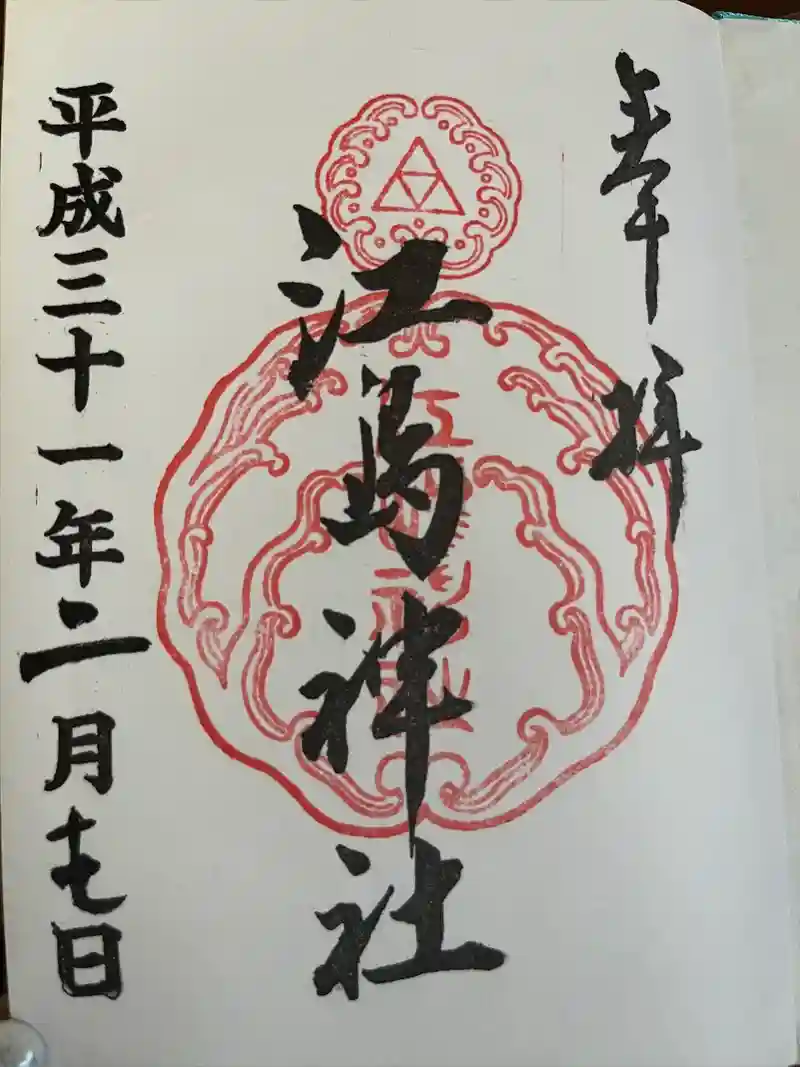 奉拝
江島神社
平成三十一年二月十七日